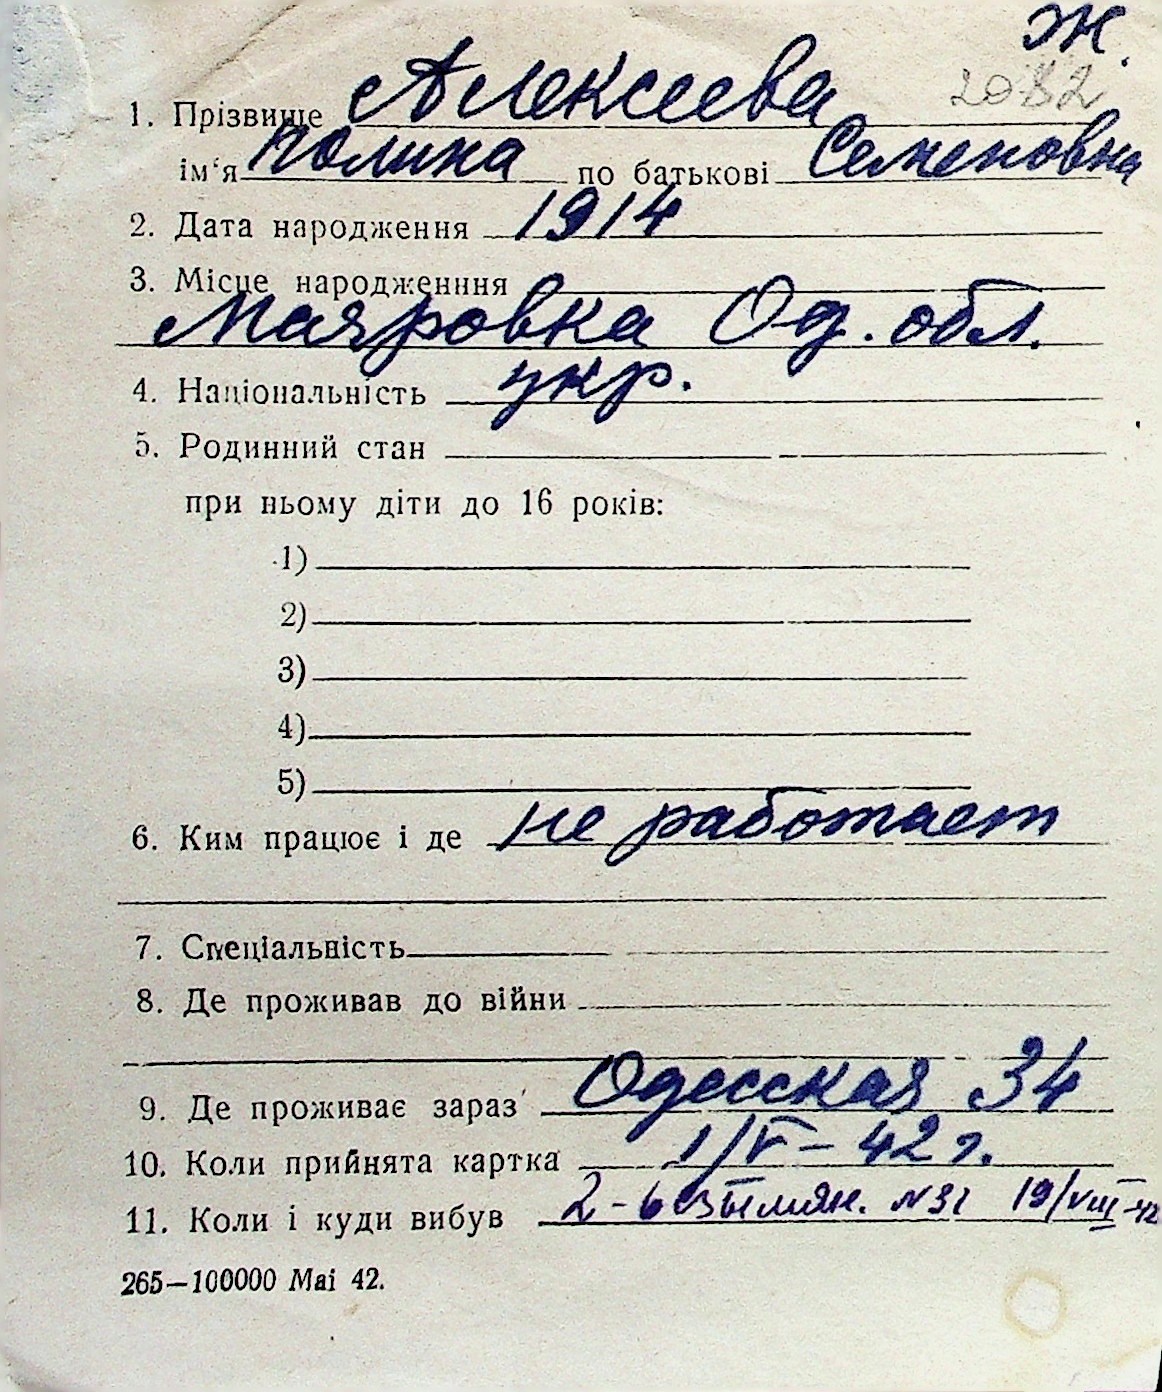 Ж.
2082
1. Прізвище Алексеева
ім‘я Полина по батькові Семеновна
2. Дата народження 1914
3. Місце народженння
Маяровка Од. обл.
4. Національність укр.
5. Родинний стан
при ньому діти до 16 років:
1)
2)
3)
4)
5)
6. Ким працює і де не работает
7. Спеціальність
8. Де проживав до війни
9. Де проживає зараз Одесская 34
10. Коли прийнята картка 1/V – 42 г.
11. Коли і куди вибув 2-безымян. №31 19/VIII-42
265—100000 Mai 42.